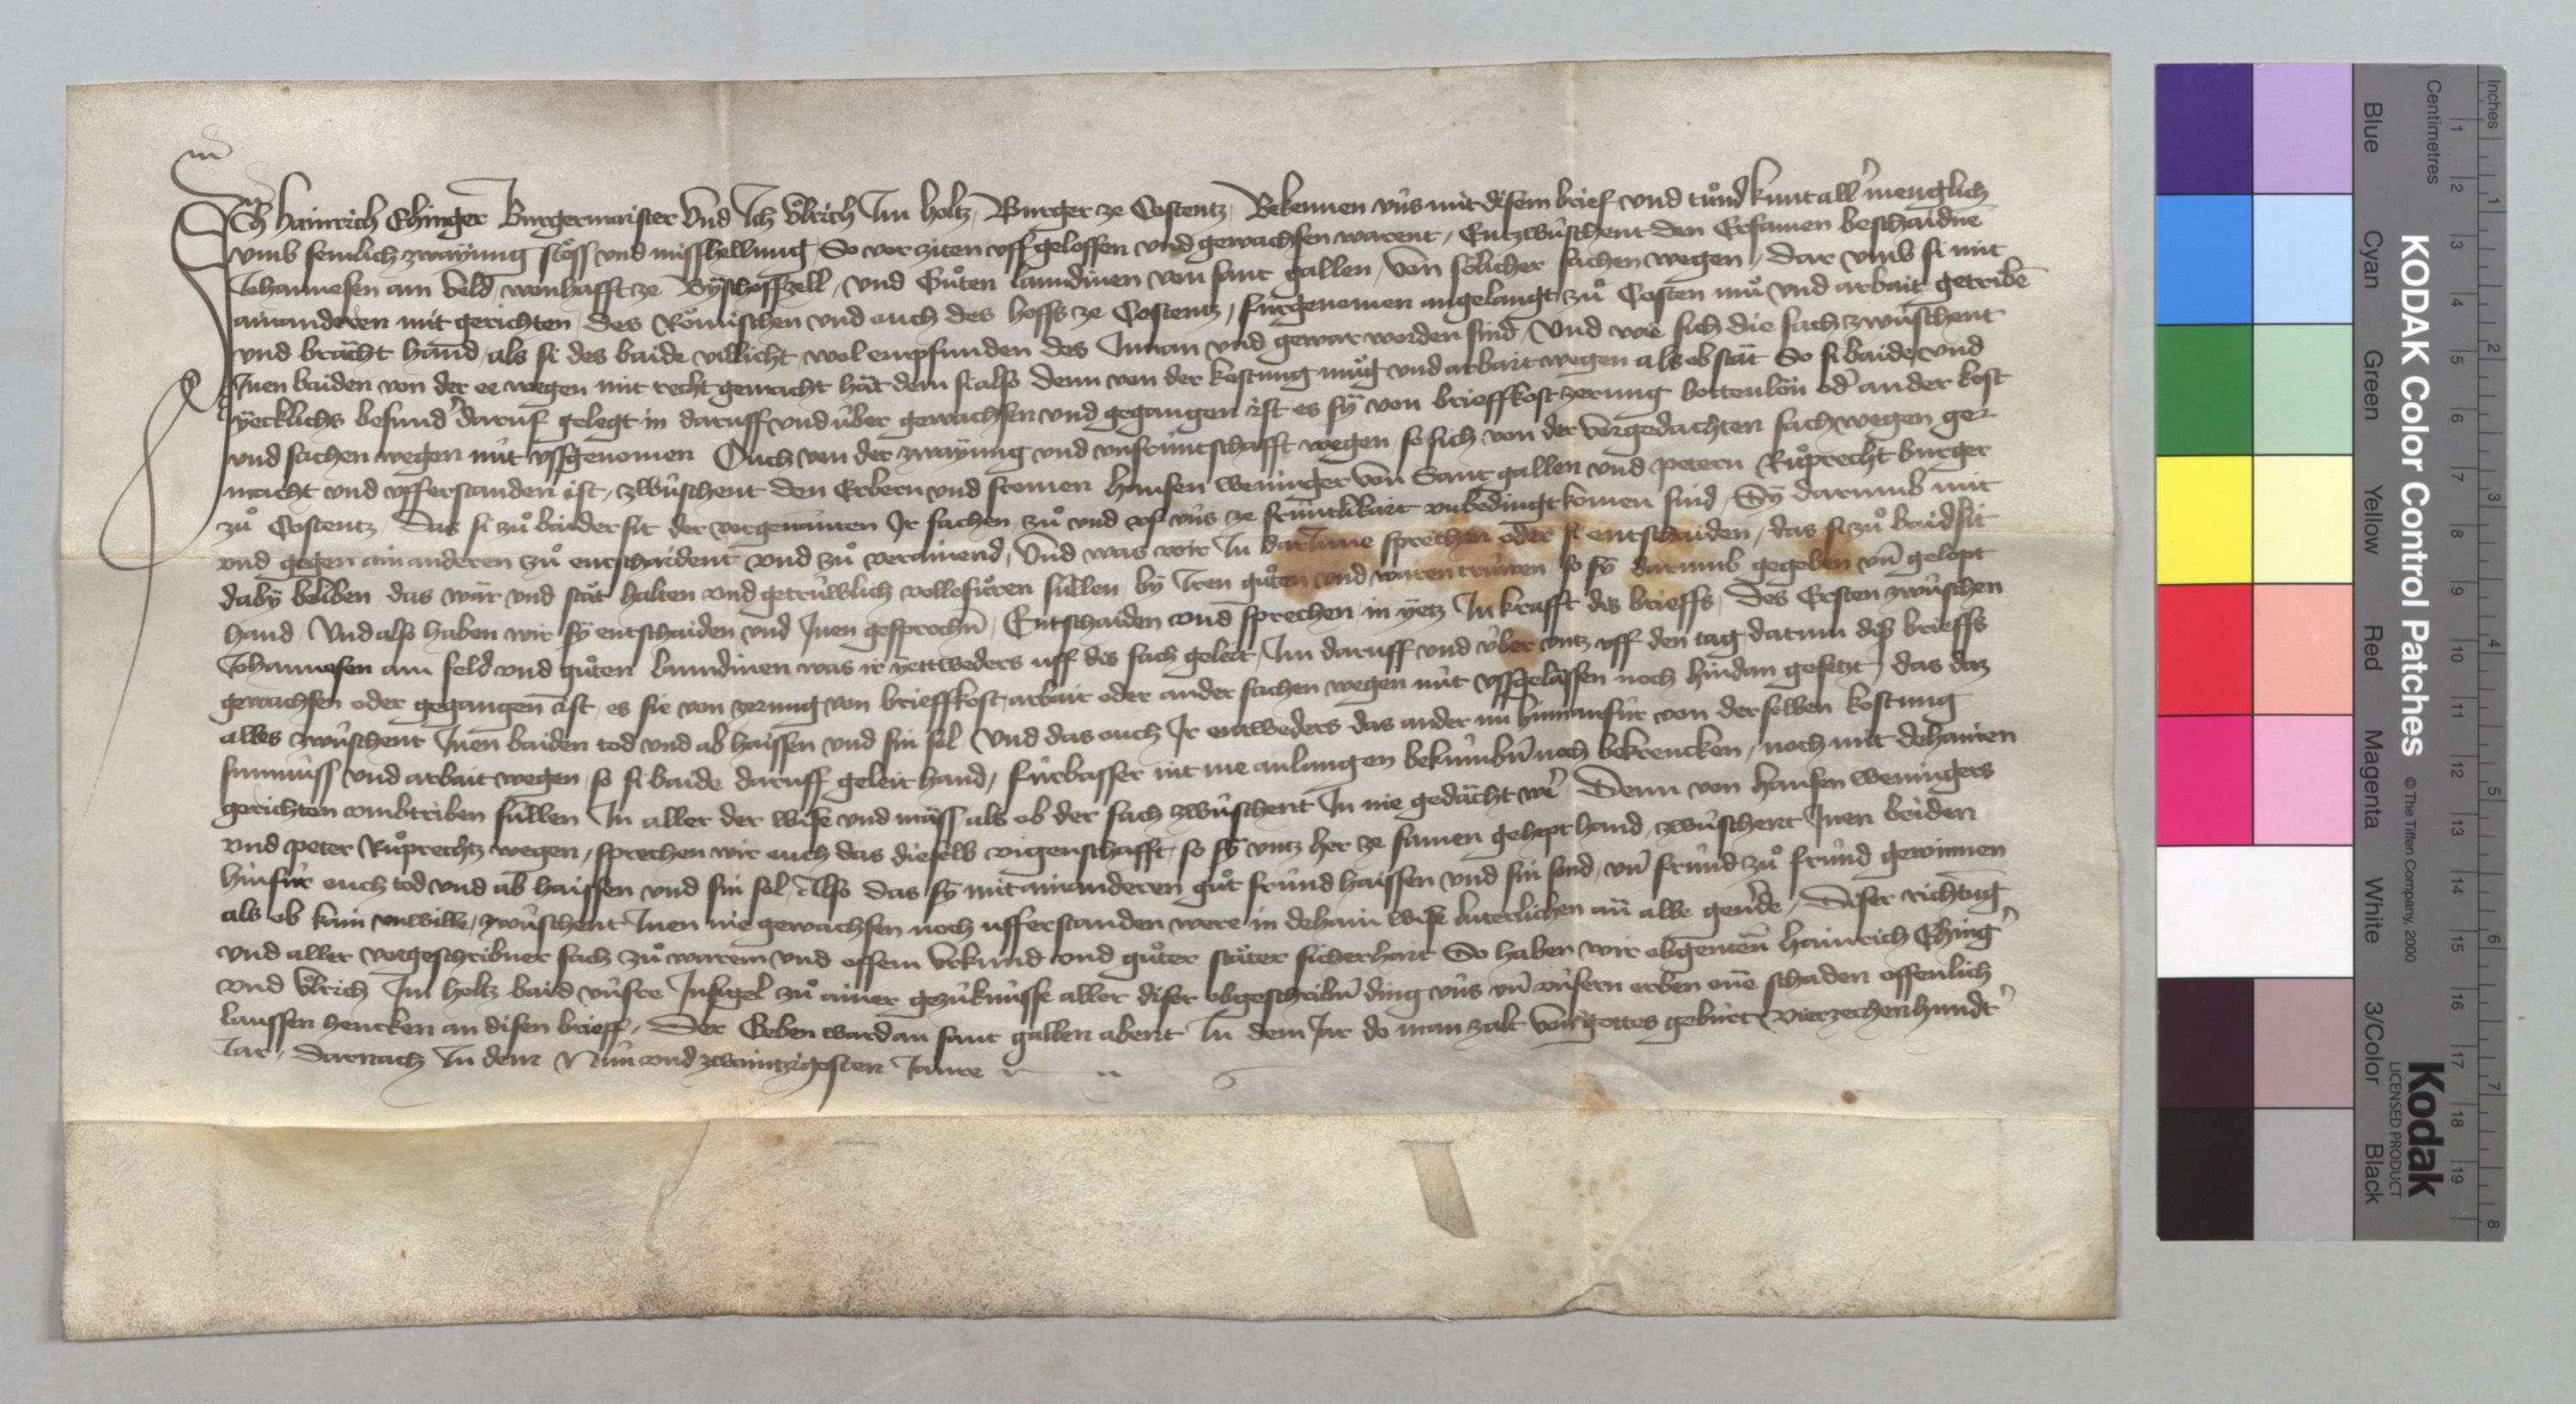 Ich Hainrich Ehinger Burgermaister Und Ich Uͦlrich Im Holtz, Burger ze Costentz, Bekennen uns mit disem brief und tuͦnd kunt all menglich
umb semlich zwayung stoͤss und misshellung, So vor ziten uff geloffen und gewachsen warent, Entzwüschent den Ersamen beschaidnē
Johannesen am veld, wonhafft ze Byschoffzell, und Guͦten lanndinen von sant gallen, von soͤlicher sachen wegen, dar umb si mit
ainanderen mit gerichten, des Roͤmischen und ouch des hoffs ze Costentz, fürgenomen angelangt, zuͦ Costen muͤ und arbait getribē
und braͤcht hand, als si des baide villicht wol empfunden des Innan und gewar worden sind, Und wie sich die sach zwüschent
Inen baiden von der ee wegen mit recht gemacht haͤt dem si also denn von der kostung muͤg und arbait wegen als ob staͤt So si baide, und
yecklichs besund daruf gelegt in daruff und über gewachsen und gegangen ist es sy von brieffkost zerung bottenlön od ander kost
und sachen wegen nüt ussgenomen Ouch von der zwayung und unfrüntschafft wegen so sich von der vorgedachten sach wegen ge-
macht und ufferstanden ist, zwüschent den Erbern und fromen Hansen weninger von Sant gallen und petern Ruͦprecht burger
zuͦ Costentz, Das si zuͦ baider sit der vorgenanten Ir sachen, zuͦ und uf uns ze früntlikait unbedingt komen sind, Sy darumb mit
und gegen ain anderen zuͦ entschaident und zuͦ verainend, Und was wir In darInne sprechen oder si entschaiden, das si zuͦ baidsit
daby beliben das waͤr und staͤt halten und getrüwlich vollefuͤren süllen, by Iren guͦten und waren trüwen so sy darumb gegeben uñ gelopt
hand, Und also haben wir sy entschaiden und Inen gesprochn, Entschaiden und sprechen in yetz In krafft dis brieffs, Des Ersten zwüschen
Johannesen am feld und guͦten lanndinen was ir yettweders uff dis sach geleit, Im daruff und über untz uff den tag datum diß brieffs
gewachsen oder gegangen ist, es sie von zerung von brieffkost, arbait oder ander sachen wegen nüt ussgelassen noch hindan gesetzt, das daz
alles zwüschent Inen baiden tod und ab haissen und sin sol Und das ouch Ir entweders das ander nu hinnanfür von derselben kostung
sumnüss und arbait wegen, so si baide daruff geleit hand, fürbasser nit me anlangen bekümbn̄ noch bekrencken, noch mit dehainen
gerichten umbtriben süllen In aller der wise und maͤss als ob der sach zwüschent In nie gedaͤcht wer Denn von hansen weningers
und peter Ruͦprechtz wegen, sprechen wir ouch das dieselb vigenschafft, so sy untz her ze samen gehept hand, zwüschent Inen beiden
hinfür ouch tod und ab haissen und sin sol, Also das sy mit ainanderen guͦt fründ haissen und sin sond, uñ fründ zuͦ fründ gewinnen
als ob kain unwille, zwüschent Inen nie gewachsen noch ufferstanden were in dehain wise luterlichen an alle geu̇de, Diser richtūg
und aller vorgeschribner sach zuͦ warem und offem Urkund und guͦter staͤter sicherhait So haben wir obgenten Hainrich Ehing
und Uͦlrich Im holtz baid unsre Insigel zuͦ ainer gezüknüsse aller diser obgeschribn̄ ding uns uñ unsern erben one schaden offenlich
laussen hencken an disen brieff, Der Geben ward an sant gallen abent In dem Jar do man zalt von gottes geburt vierzechenhundt
Jar, Darnach In dem Nün und zwaintzigosten Jaure
Inches
Centimetres
1 2 3 4 5 6 7 8 9 10 11 12 13 14 15 16 17 18 19
1 2 3 4 5 6 7 8
KODAK Color Control Patches
© The Tiffen Company, 2000
Kodak
LICENSED PRODUCT
Blue
Cyan
Green
Yellow
Red
Magenta
White
3/Color
Black